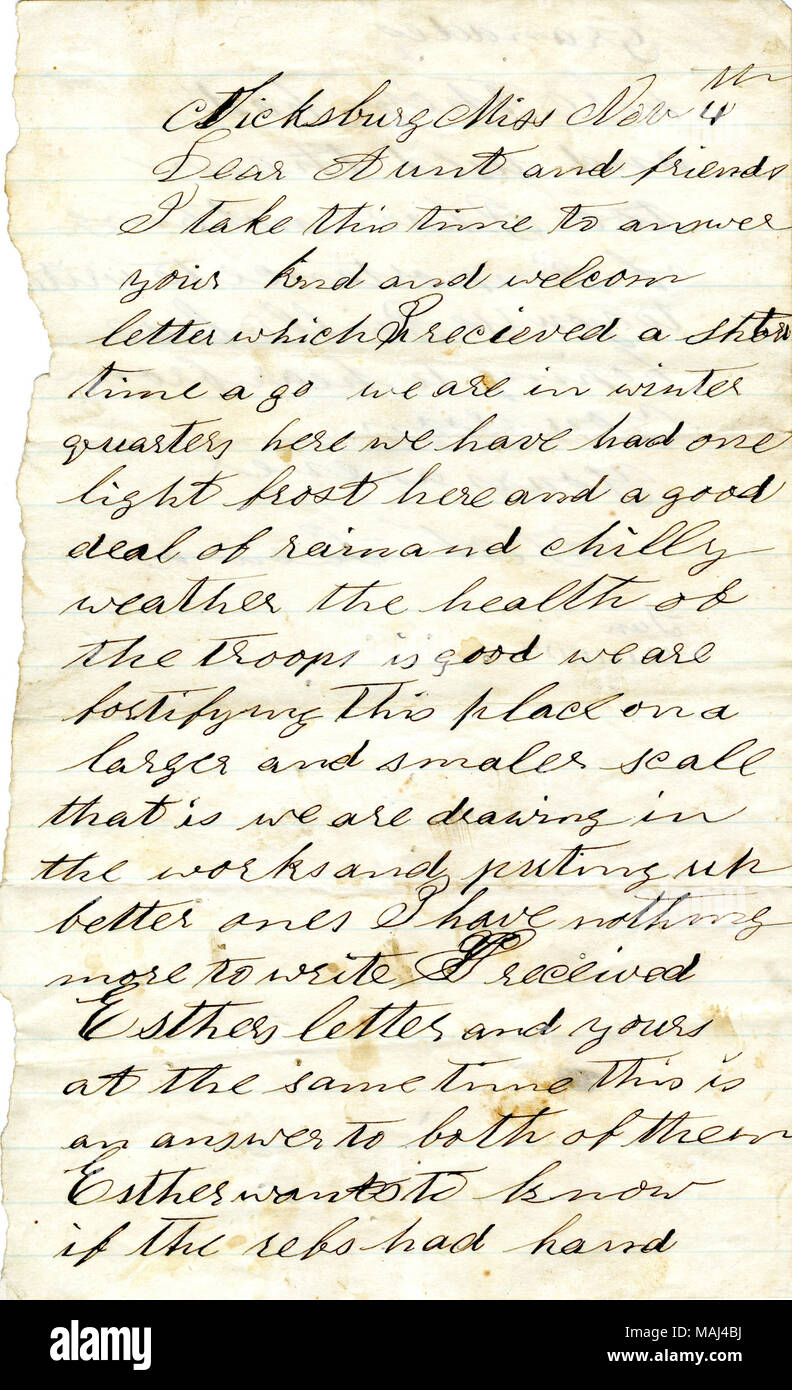 Vicksburg Miss Nov 4th
Dear Aunt and friends
I take this time to answer
your kind and welcom
letter which I recieved a short
time a go we are in winter
quarters here we have had one
light frost here and a good
deal of rain and chilly
weather the health of
the troops is good we are
fortifying this place on a
larger and smaler scale
that is we are drawing in
the works and puting up
better ones I have nothing
more to write I received
Esthers letter and yours
at the same time this is
an answer to both of them
Esther wants to know
if the rebs had hand
alamy
Image ID: MAJ4BJ
www.alamy.com